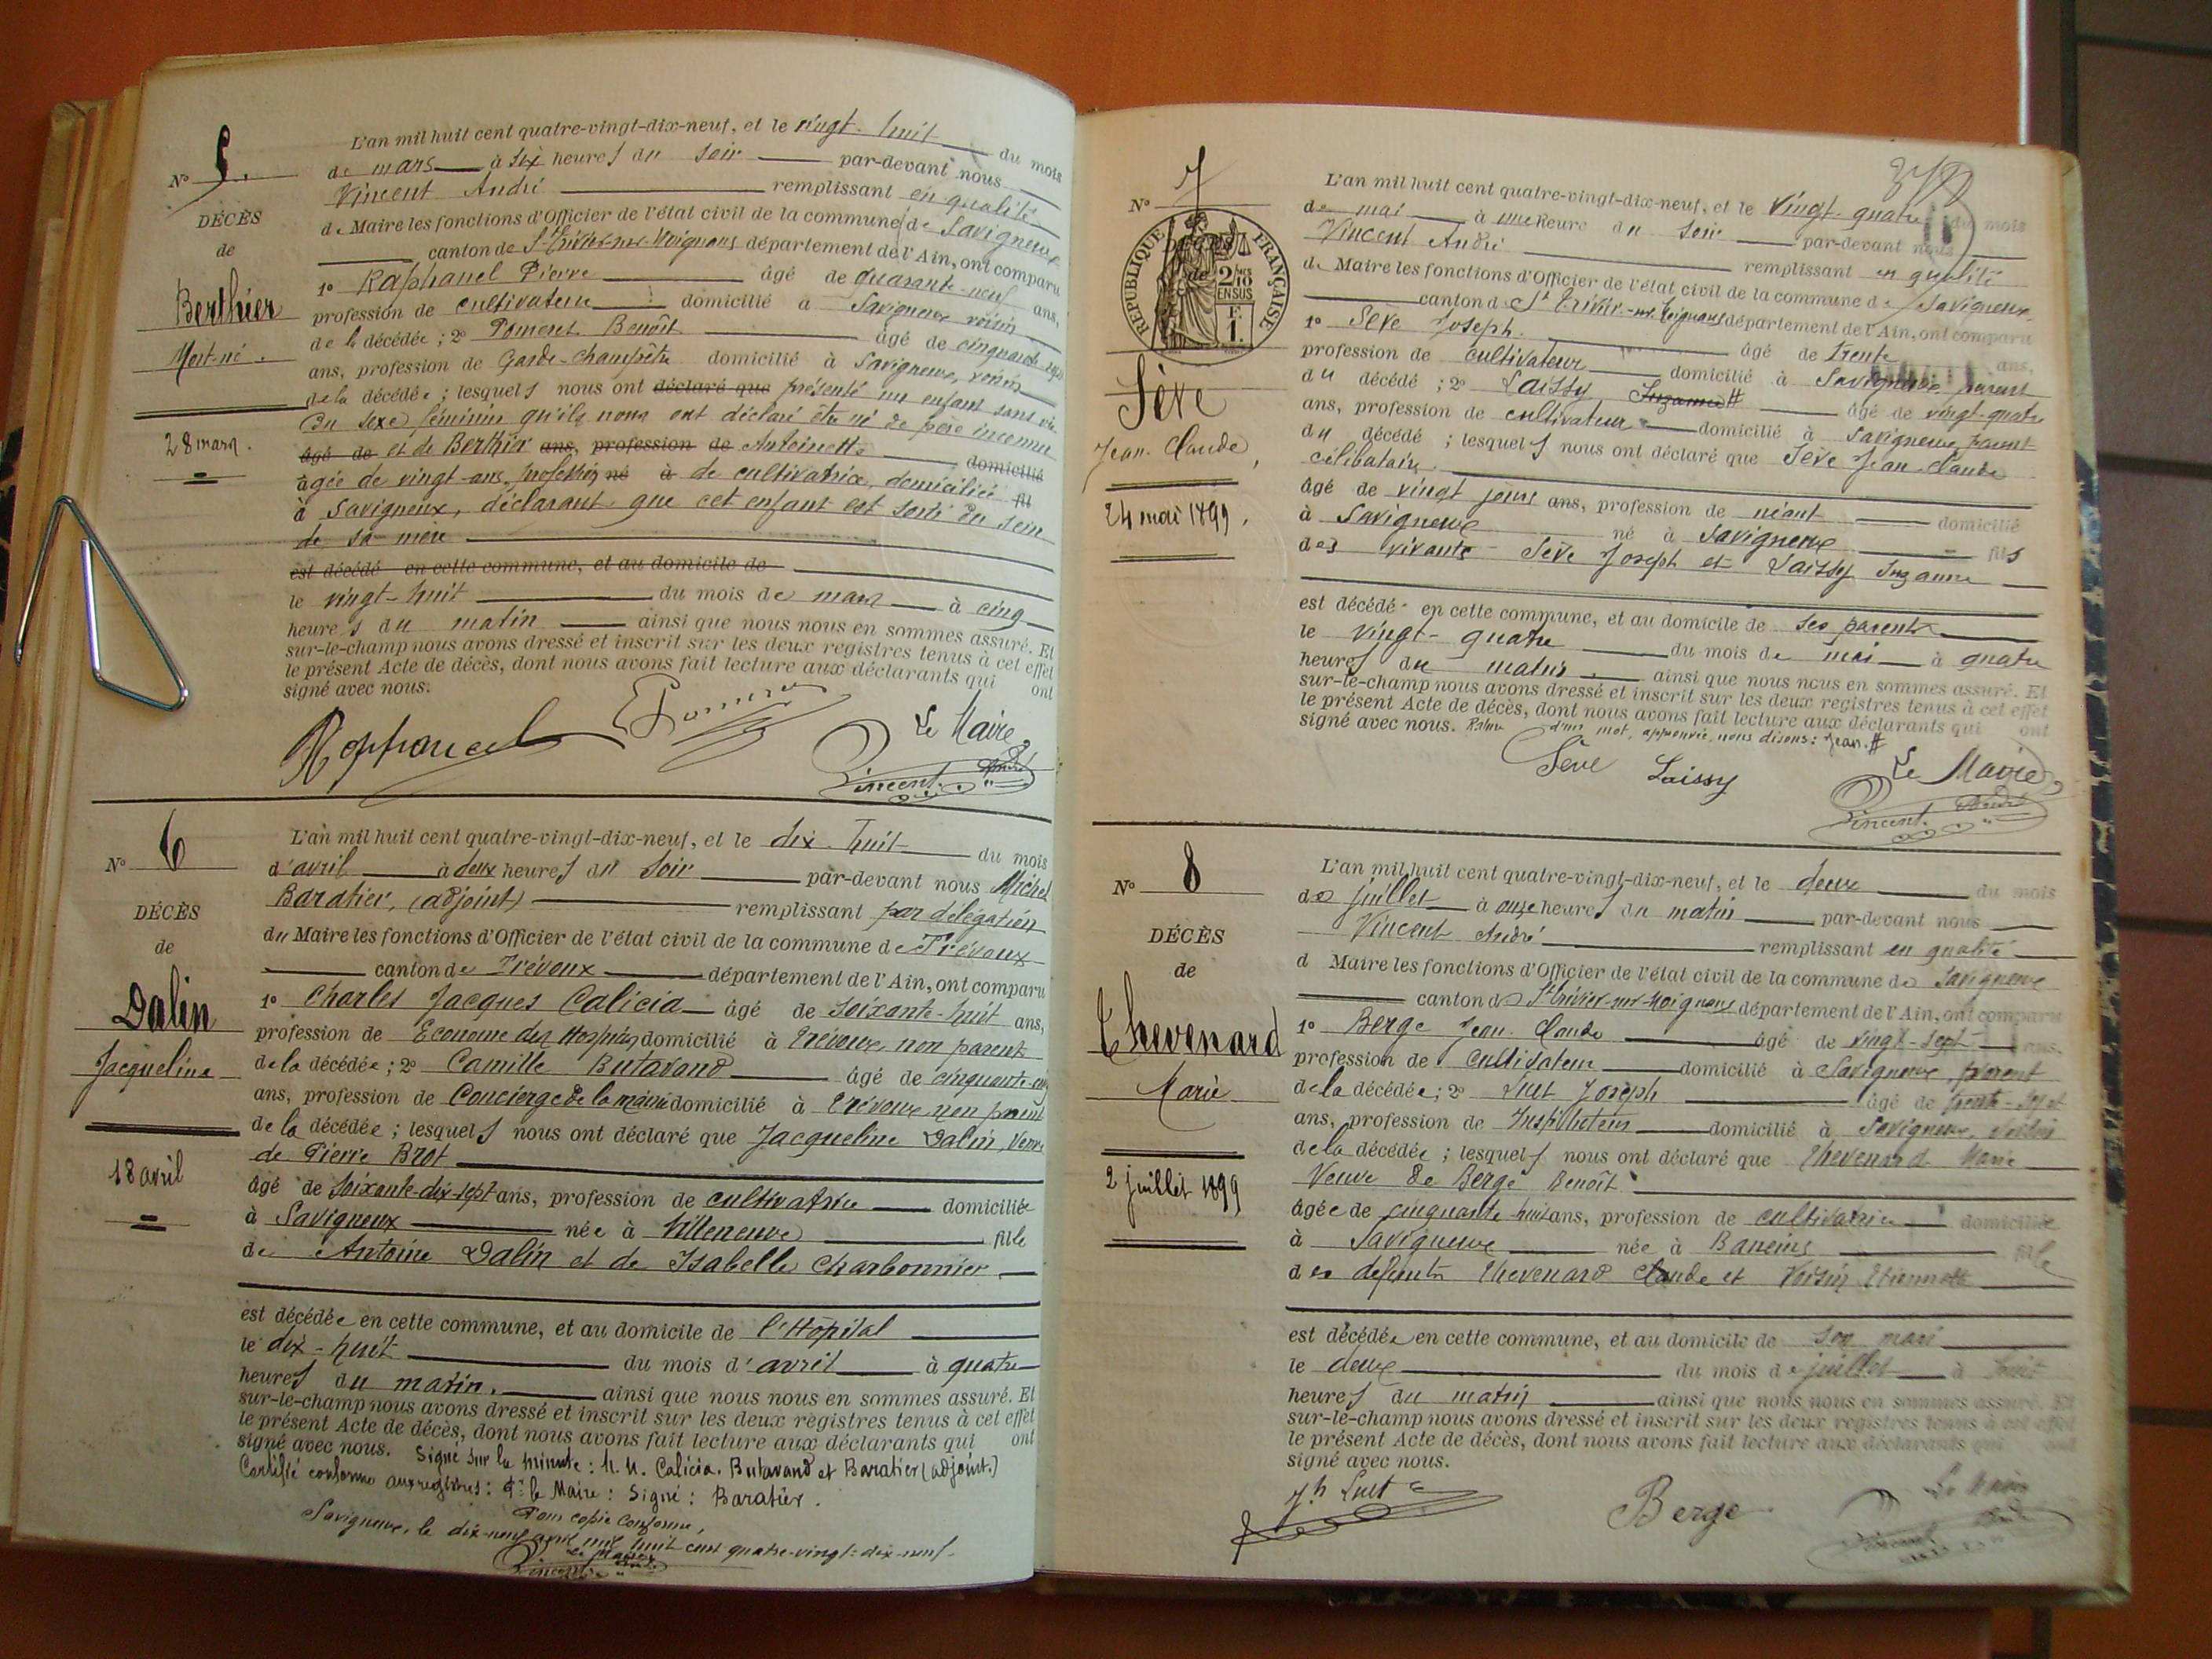 N° 5.
DÉCÈS
de
Berthier
Mort-né.
28 mars.
L'an mil huit cent quatre-vingt-dix-neuf, et le vingt-huit du mois
de mars à six heures du soir par-devant nous
Vincent André remplissant en qualité
de Maire les fonctions d'Officier de l'état civil de la commune de Savigneux
canton de St Trivier-sur-Moignans département de l'Ain, ont comparu
1° Raphanel Pierre âgé de quarante-neuf ans,
profession de cultivateur domicilié à Savigneux voisin
de la décédée; 2° Pomeret Benoît âgé de cinquante-
ans, profession de Garde-champêtre domicilié à Savigneux, voisin
de la décédée; lesquels nous ont déclaré que présenté un enfant sans vie
du sexe féminin qu'ils nous ont déclaré être né de père inconnu
âgé de et de Berthier ans, profession de Antoinette domicilié
âgée de vingt-ans, profession né à de cultivatrice, domiciliée fil
à Savigneux, déclarant que cet enfant est sorti du sein
de sa mère
est décédé en cette commune, et au domicile de
le vingt-huit du mois de mars à cinq
heures du matin ainsi que nous nous en sommes assuré. Et
sur-le-champ nous avons dressé et inscrit sur les deux registres tenus à cet effet
le présent Acte de décès, dont nous avons fait lecture aux déclarants qui ont
signé avec nous.
Le Maire,
Vincent André
N° 6
DÉCÈS
de
Dalin
Jacqueline
18 avril
L'an mil huit cent quatre-vingt-dix-neuf, et le dix-huit du mois
d'avril à deux heures du soir par-devant nous Michel
Baratier, (adjoint) remplissant par délégation
du Maire les fonctions d'Officier de l'état civil de la commune de Trévoux
canton de Trévoux département de l'Ain, ont comparu
1° Charles Jacques Calicia âgé de soixante-huit ans,
profession de Econome des Hospices domicilié à Trévoux, non parent
de la décédée; 2° Camille Butavand âgé de cinquante-
ans, profession de Concierge de la mairie domicilié à Trévoux non parent
de la décédée; lesquels nous ont déclaré que Jacqueline Dalin, veuve
de Pierre Brot
âgé de soixante-dix-sept ans, profession de cultivatrice domiciliée
à Savigneux née à Villeneuve fille
de Antoine Dalin et de Isabelle Charbonnier
est décédée en cette commune, et au domicile de l'Hôpital
le dix-huit du mois d'avril à quatre
heures du matin. ainsi que nous nous en sommes assuré. Et
sur-le-champ nous avons dressé et inscrit sur les deux registres tenus à cet effet
le présent Acte de décès, dont nous avons fait lecture aux déclarants qui ont
signé avec nous. Signé sur la minute: M.M. Calicia, Butavand et Baratier (adjoint.)
Certifié conforme aux registres: Pr le Maire: Signé: Baratier.
Pour copie conforme,
Savigneux, le dix-neuf avril mil huit cent quatre-vingt-dix-neuf.
Le Maire
Vincent André
N° 7
RÉPUBLIQUE FRANÇAISE
2/10 EN SUS
F. 1.
DÉCÈS
de
Sève
Jean-Claude,
24 mai 1899.
L'an mil huit cent quatre-vingt-dix-neuf, et le vingt-quatre du mois
de mai à une heure du soir par-devant nous
Vincent André remplissant en qualité
de Maire les fonctions d'Officier de l'état civil de la commune de Savigneux
canton de St Trivier-sur-Moignans département de l'Ain, ont comparu
1° Sève Joseph. âgé de trente ans,
profession de cultivateur domicilié à Savigneux parent
du décédé; 2° Laissy Suzanne # âgé de vingt-quatre
ans, profession de cultivateur domicilié à Savigneux parent
du décédé; lesquels nous ont déclaré que Sève Jean-Claude
célibataire.
âgé de vingt jours ans, profession de néant domicilié
à Savigneux né à Savigneux fils
des vivants Sève Joseph et Laissy Suzanne
est décédé en cette commune, et au domicile de ses parents
le vingt-quatre du mois de mai à quatre
heures du matin ainsi que nous nous en sommes assuré. Et
sur-le-champ nous avons dressé et inscrit sur les deux registres tenus à cet effet
le présent Acte de décès, dont nous avons fait lecture aux déclarants qui ont
signé avec nous. d'un mot, approuvée, nous disons: Jean. #
Sève Laissy
Le Maire,
Vincent André
N° 8
DÉCÈS
de
Thevenard
Marie
2 juillet 1899
L'an mil huit cent quatre-vingt-dix-neuf, et le deux du mois
de juillet à onze heures du matin par-devant nous
Vincent André remplissant en qualité
d Maire les fonctions d'Officier de l'état civil de la commune de Savigneux
canton de St Trivier-sur-Moignans département de l'Ain, ont comparu
1° Berge Jean-Claude âgé de vingt-sept ans,
profession de cultivateur domicilié à Savigneux, parent
de la décédée; 2° Luet Joseph âgé de trente-sept
ans, profession de Instituteur domicilié à Savigneux, voisin
de la décédée; lesquels nous ont déclaré que Thevenard Marie
Veuve de Berge Benoît
âgée de cinquante-huit ans, profession de cultivatrice domiciliée
à Savigneux née à Baneins fille
des défunts Thevenard Claude et Voisin Etiennette
est décédée en cette commune, et au domicile de son mari
le deux du mois de juillet à huit
heures du matin ainsi que nous nous en sommes assuré. Et
sur-le-champ nous avons dressé et inscrit sur les deux registres tenus à cet effet
le présent Acte de décès, dont nous avons fait lecture aux déclarants qui ont
signé avec nous.
Jh Luet
Berge
Le Maire
Vincent André